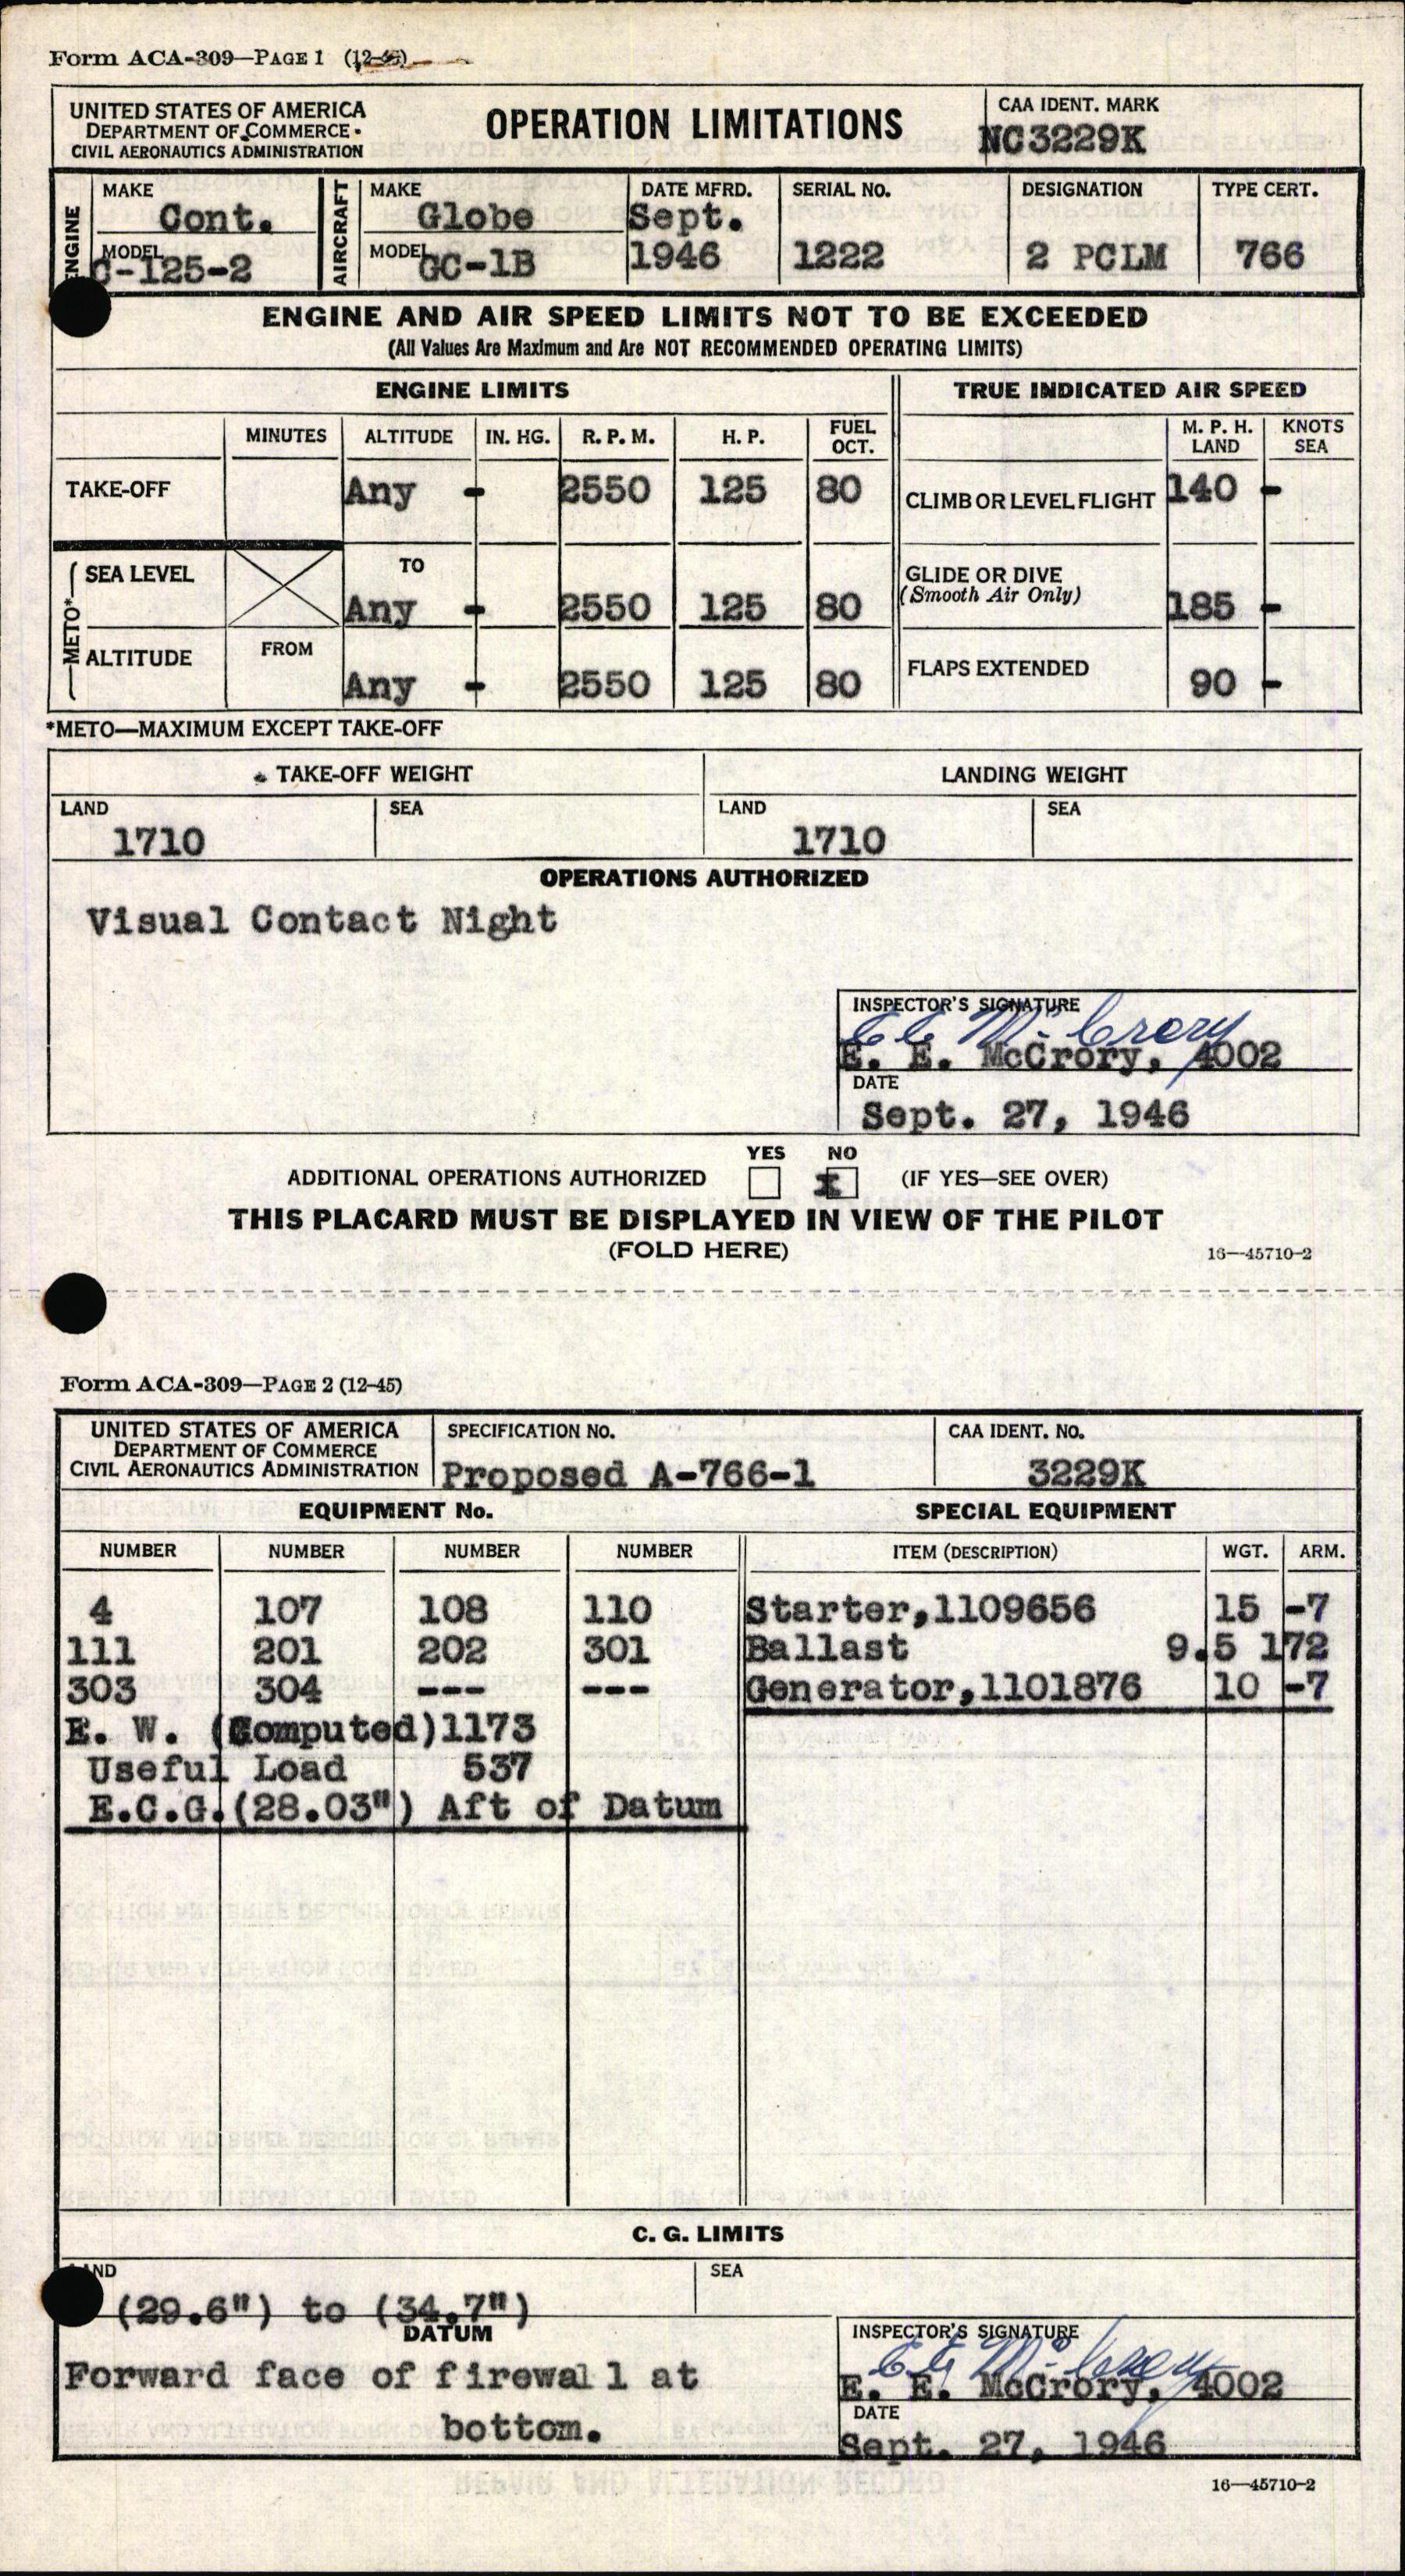 Form ACA-309—PAGE 1 (12-45)
UNITED STATES OF AMERICA
DEPARTMENT OF COMMERCE
CIVIL AERONAUTICS ADMINISTRATION
OPERATION LIMITATIONS
CAA IDENT. MARK
NC3229K
ENGINE
MAKE
Cont.
MODEL
C-125-2
AIRCRAFT
MAKE
Globe
MODEL
GC-1B
DATE MFRD.
Sept.
1946
SERIAL NO.
1222
DESIGNATION
2 PCLM
TYPE CERT.
766
ENGINE AND AIR SPEED LIMITS NOT TO BE EXCEEDED
(All Values Are Maximum and Are NOT RECOMMENDED OPERATING LIMITS)
ENGINE LIMITS
TRUE INDICATED AIR SPEED
MINUTES ALTITUDE IN. HG. R. P. M. H. P. FUEL OCT.
M. P. H. LAND KNOTS SEA
TAKE-OFF Any - 2550 125 80
CLIMB OR LEVEL FLIGHT 140 -
METO*
SEA LEVEL TO Any - 2550 125 80
GLIDE OR DIVE
(Smooth Air Only) 185 -
ALTITUDE FROM Any - 2550 125 80
FLAPS EXTENDED 90 -
*METO—MAXIMUM EXCEPT TAKE-OFF
TAKE-OFF WEIGHT
LANDING WEIGHT
LAND SEA LAND SEA
1710 1710
OPERATIONS AUTHORIZED
Visual Contact Night
INSPECTOR'S SIGNATURE
E E McCrory
E. E. McCrory, 4002
DATE
Sept. 27, 1946
YES NO
ADDITIONAL OPERATIONS AUTHORIZED X (IF YES—SEE OVER)
THIS PLACARD MUST BE DISPLAYED IN VIEW OF THE PILOT
(FOLD HERE)
16—45710-2
Form ACA-309—PAGE 2 (12-45)
UNITED STATES OF AMERICA
DEPARTMENT OF COMMERCE
CIVIL AERONAUTICS ADMINISTRATION
SPECIFICATION NO.
Proposed A-766-1
CAA IDENT. NO.
3229K
EQUIPMENT No.
SPECIAL EQUIPMENT
NUMBER NUMBER NUMBER NUMBER ITEM (DESCRIPTION) WGT. ARM.
4 107 108 110 Starter,1109656 15 -7
111 201 202 301 Ballast 9.5 172
303 304 --- --- Generator,1101876 10 -7
E. W. (Computed)1173
Useful Load 537
E.C.G.(28.03") Aft of Datum
C. G. LIMITS
LAND
SEA
(29.6") to (34.7")
DATUM
Forward face of firewall at
bottom.
INSPECTOR'S SIGNATURE
E E McCrory
E. E. McCrory, 4002
DATE
Sept. 27, 1946
16—45710-2